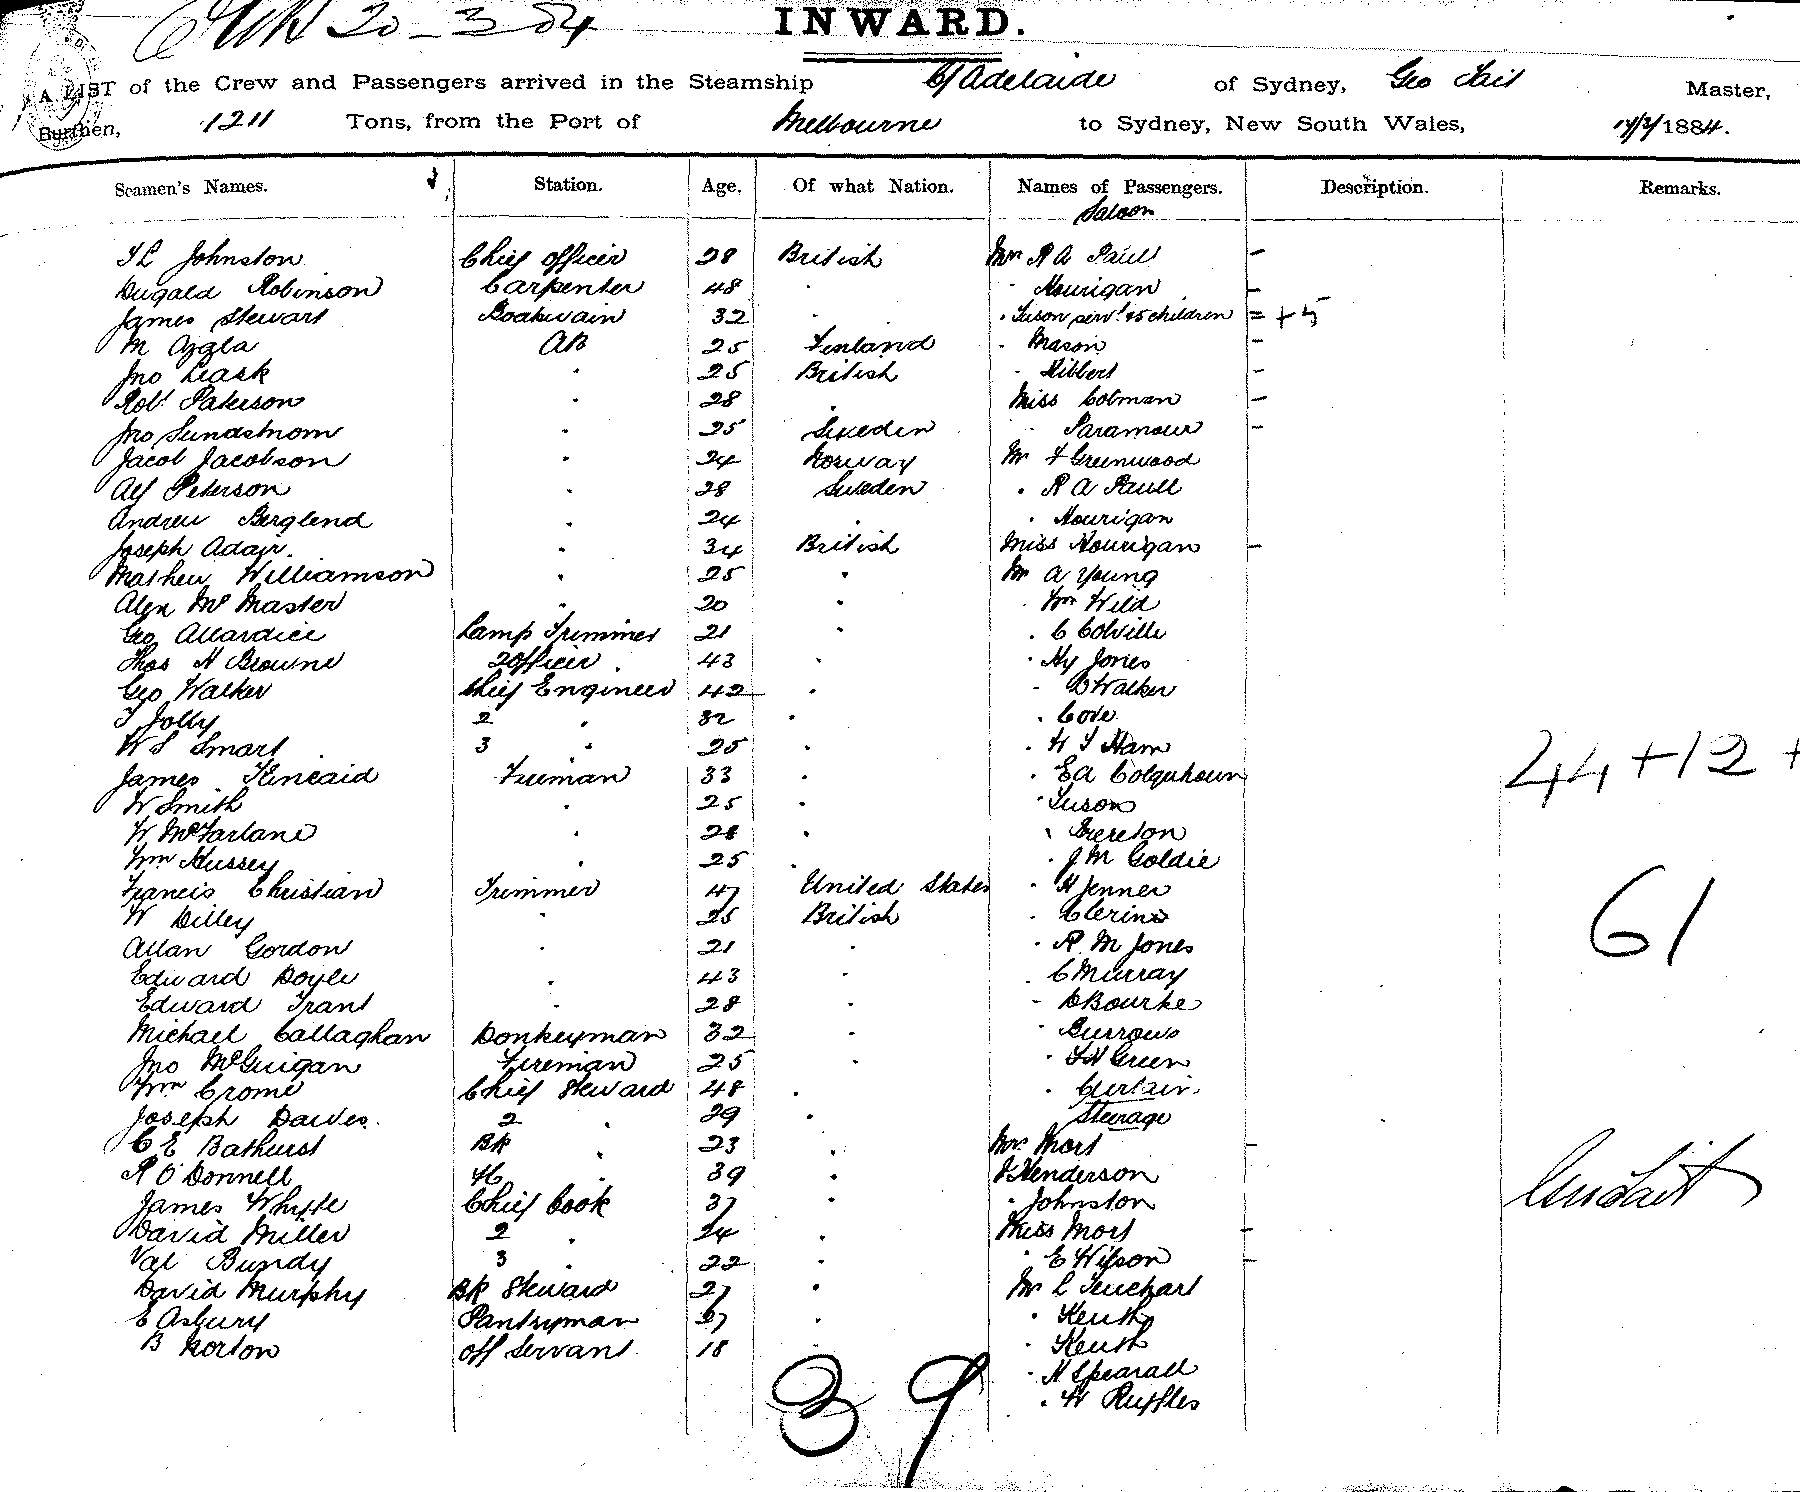 20-3-84
INWARD.
A LIST of the Crew and Passengers arrived in the Steamship C/Adelaide of Sydney, Geo Tait Master,
Burthen, 1211 Tons, from the Port of Melbourne to Sydney, New South Wales, 1884.
Seamen's Names. Station. Age. Of what Nation. Names of Passengers. Description. Remarks.
Saloon
Johnston Chief officer 28 British Mrs R A Paull –
Dugald Robinson Carpenter 48 " " Hourigan –
James Stewart Boatswain 32 " " Tuson servt & 5 children = + 5
M AB 25 Finland " Mason –
Jno Leask " 25 British " Hibbert –
Robt Paterson " 28 " Miss Colman –
Jno Sundstrom " 25 Sweden " Paramour –
Jacob Jacobson " 24 Norway Mr F Greenwood
Alf Peterson " 28 Sweden " R A Paull
Andrew Berglend " 24 " " Hourigan
Joseph Adair. " 34 British Miss Hourigan –
Mathew Williamson " 25 " Mr A Young
Alex McMaster " 20 " " Wm Wild
Geo Allardice Lamp Trimmer 21 " " C Colville
Thos H Browne 2 Officer 43 " " Hy Jones
Geo Walker Chief Engineer 42 " " D Walker
T Jolly 2 " 32 " " Cove
W S Smart 3 " 25 " " Ham
James Kincaid Fireman 33 " " E A Colquhoun
W Smith " 25 " " Tuson
W McFarlane " 28 " " Brereton
Wm Hussey " 25 " " J M Goldie
Francis Christian Trimmer 47 United States " H Jenner
W Dilley " 25 British "
Allan Gordon " 21 " " R M Jones
Edward Doyle " 43 " " C Murray
Edward Trant " 28 " " D Bourke
Michael Callaghan Donkeyman 32 " " Burrows
Jno McGuigan Fireman 25 " " Green
Wm Crome Chief Steward 48 " " Curtain.
Joseph Davies. 2 " 29 " Steerage
C E Bathurst BK " 23 " Mrs Mort –
R O'Donnell " 39 " Henderson
James Whytte Chief Cook 37 " " Johnston
David Miller 2 " 24 " Miss Mort –
Val Bundy 3 " 22 " " E Wilson –
David Murphy BK Steward 27 " Mr L Teuchart
E Asbury Pantryman 27 " " Keith
B Norton off Servant 18 " " Keith
" H Spearall
" W Ruffles
44+12+
61
Geo Tait
39